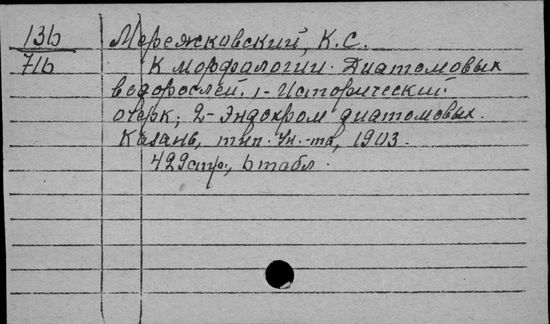 13b Мережковский, К.С.
71b К морфологии Диатомовых
водорослей. 1-Исторический
очерк; 2-Эндохром диатомовых.
Казань, тип. Ун.-та, 1903.
429стр., 6 табл.